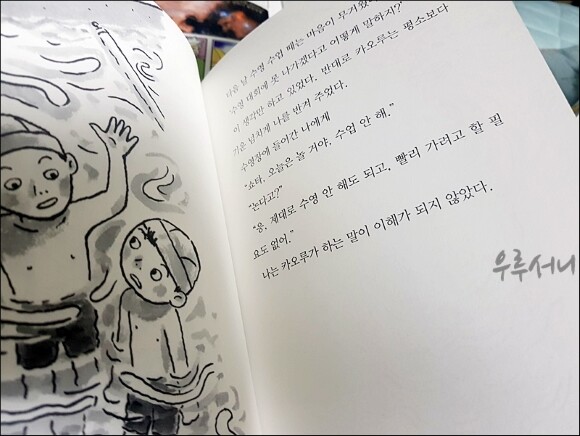 다음 날 수영 수업 때는 마음이 무거웠
'수영 대회에 못 나가겠다고 어떻게 말하지?'
이 생각만 하고 있었다. 반대로 카오루는 평소보다
기운 넘치게 나를 반겨 주었다.
수영장에 들어간 나에게
"쇼타, 오늘은 놀 거야. 수업 안 해."
"논다고?"
"응. 제대로 수영 안 해도 되고, 빨리 가려고 할 필
요도 없어."
나는 카오루가 하는 말이 이해가 되지 않았다.
우루서니